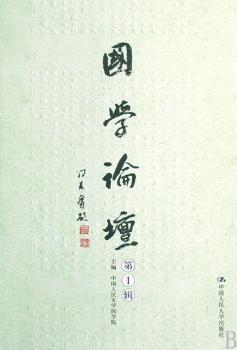 國學論壇
第1辑
主编 中国人民大学国学院
中国人民大学出版社